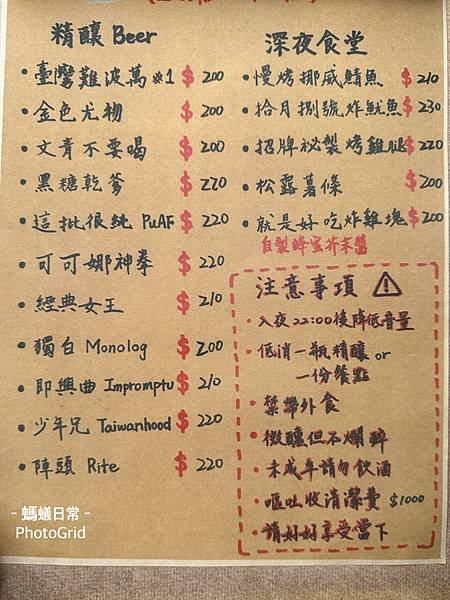 精釀 Beer
• 臺灣難波萬 no.1 $ 200
• 金色尤物 $ 200
• 文青不要喝 $ 200
• 黑糖乾爹 $ 220
• 這批很純 PuAF $ 220
• 可可娜神拳 $ 220
• 經典女王 $ 210
• 獨白 Monolog $ 200
• 即興曲 Impromptu $ 210
• 少年兄 Taiwanhood $ 220
• 陣頭 Rite $ 220
深夜食堂
• 慢烤挪威鯖魚 $ 210
• 拾月捌號炸魷魚 $ 230
• 招牌祕製烤雞腿 $ 220
• 松露薯條 $ 200
• 就是好吃炸雞塊 $ 200
自製蜂蜜芥末醬
注意事項
• 入夜22:00後降低音量
• 低消一瓶精釀 or
一份餐點
• 禁帶外食
• 微醺但不爛醉
• 未成年請勿飲酒
• 嘔吐收清潔費 $1000
• 請好好享受當下
- 螞蟻日常 -
PhotoGrid